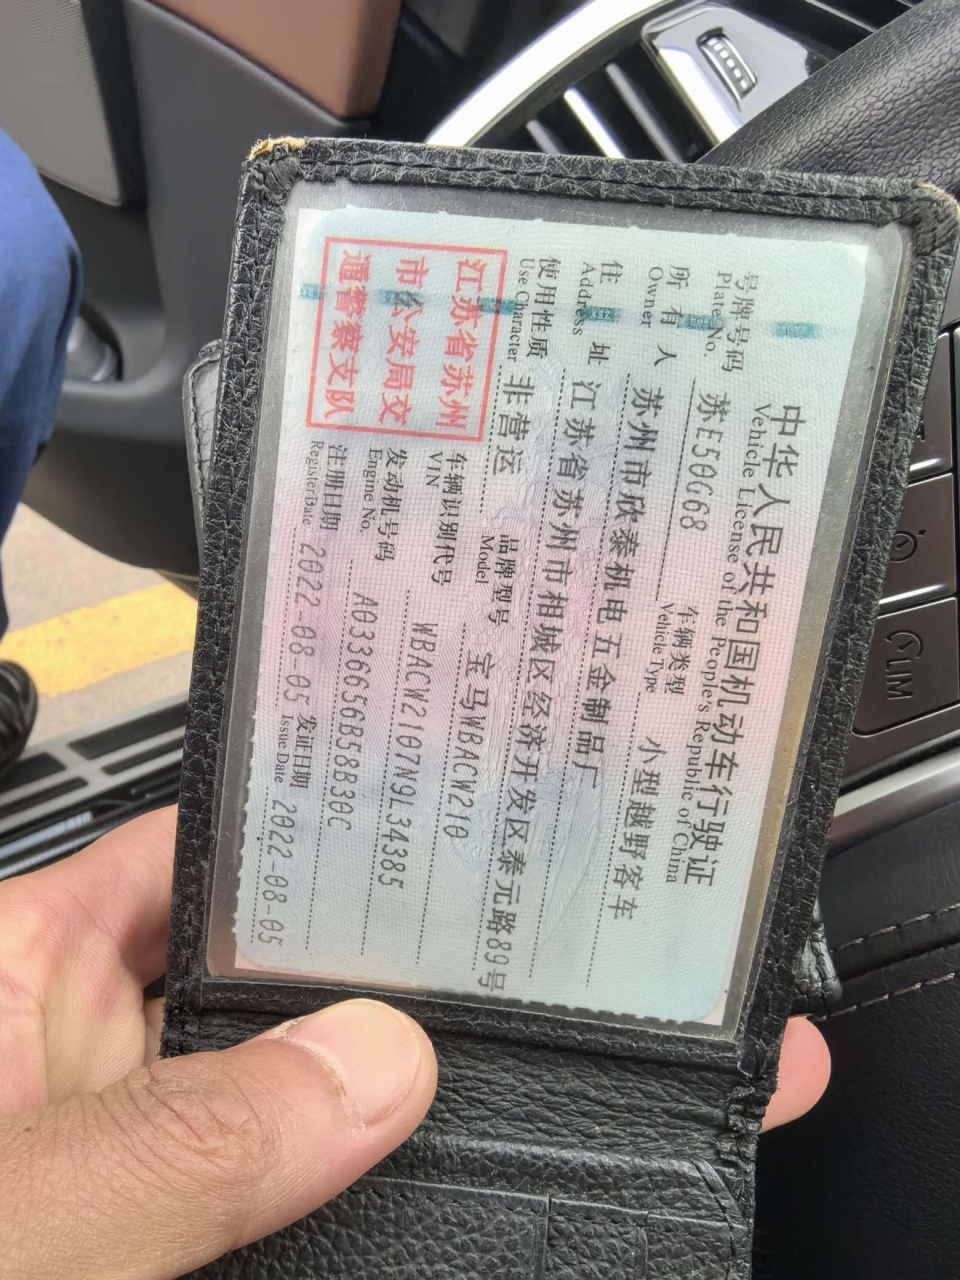 中华人民共和国机动车行驶证
Vehicle License of the People's Republic of China
号牌号码 苏E50G68 车辆类型 小型越野客车
Plate No. Vehicle Type
所有人 苏州市欣泰机电五金制品厂
Owner
住址 江苏省苏州市相城区经济开发区泰元路89号
Address
使用性质 非营运 品牌型号 宝马WBACW210
Use Character Model
江苏省苏州
市公安局交
通警察支队
车辆识别代号 WBACW2107N9L34385
VIN
发动机号码 A0336656B58B30C
Engine No.
注册日期 2022-08-05 发证日期 2022-08-05
Register Date Issue Date
LIM